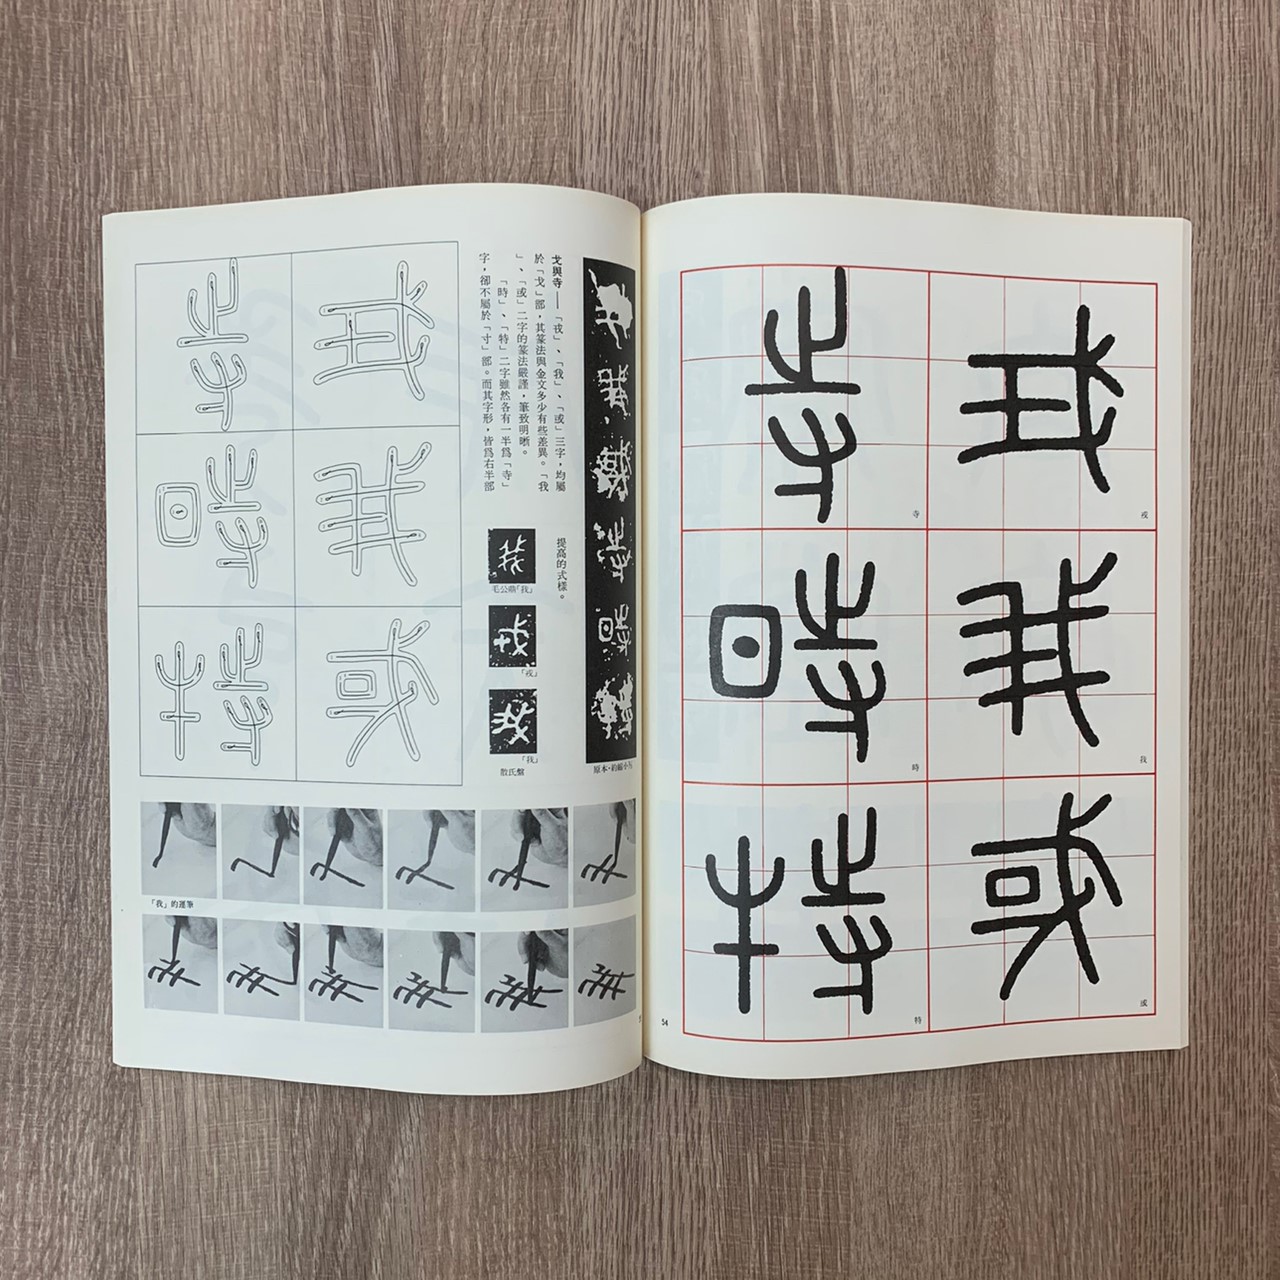 戎
戎
我
我
或
或
寺
寺
時
時
特
特
54
戈與寺——「戎」、「我」、「或」三字，均屬
於「戈」部，其篆法與金文多少有些差異。「我
」、「或」二字的篆法嚴謹，筆致明晰。
「時」、「特」二字雖然各有一半爲「寺」
字，卻不屬於「寸」部。而其字形，皆爲右半部
提高的式樣。
我
毛公鼎「我」
戎
「戎」
我
「我」
散氏盤
戎
我
或
寺
時
特
「我」的運筆